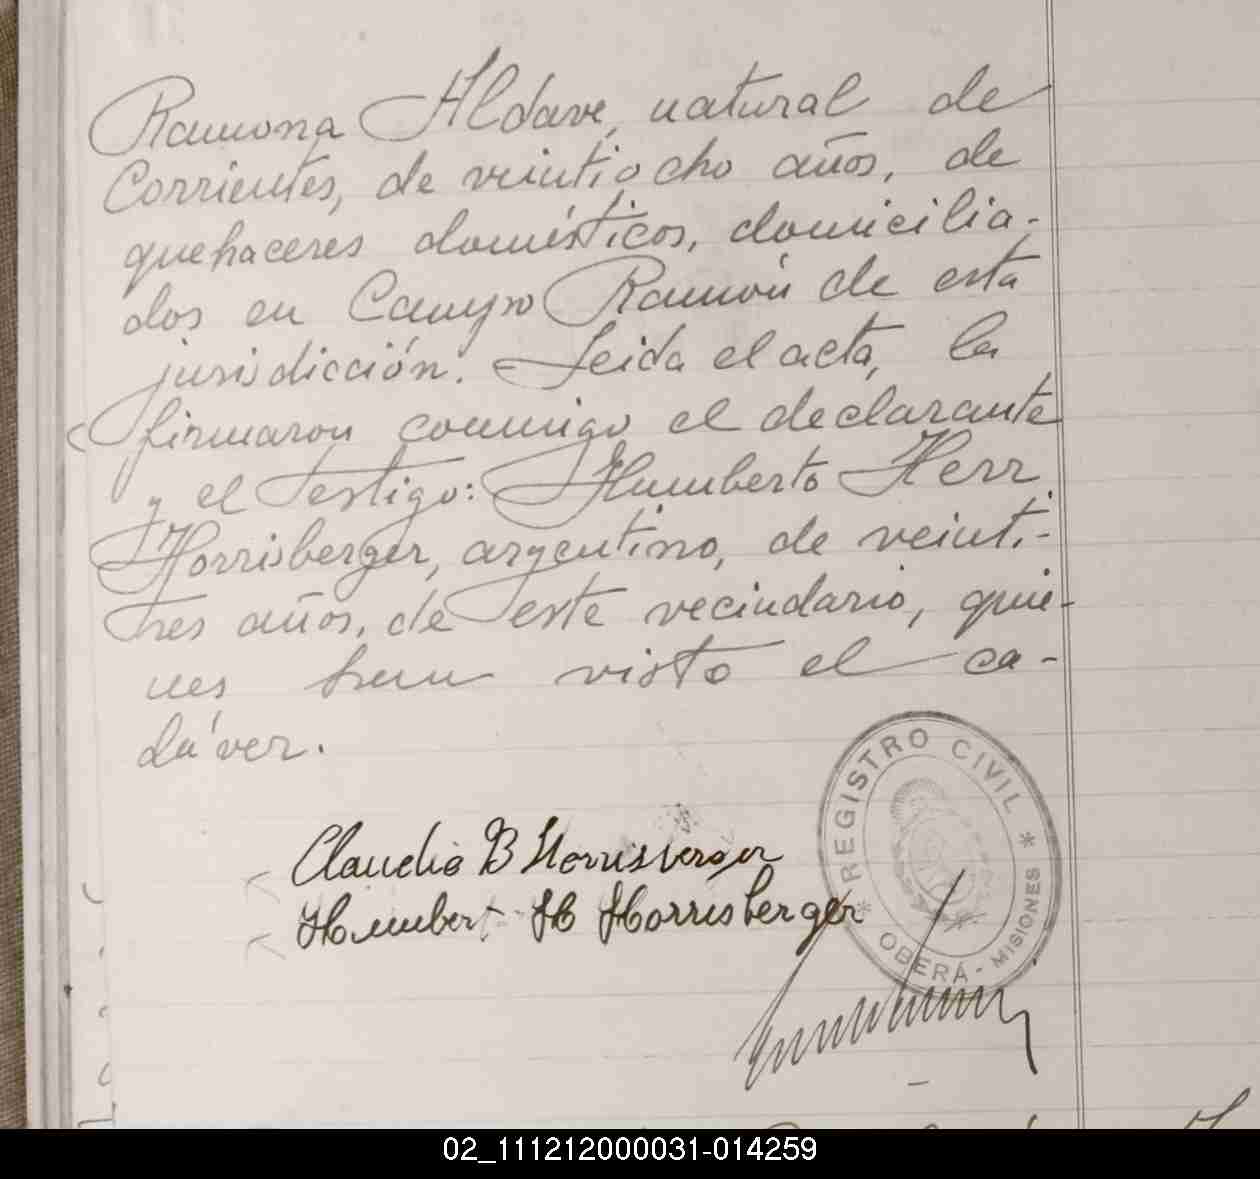 Ramona Aldave, natural de
Corrientes, de veintiocho años, de
quehaceres domésticos, domicilia-
dos en Campo Ramón de esta
jurisdicción. Leida el acta, la
firmaron conmigo el declarante
y el testigo: Humberto Herr.
Horrisberger, argentino, de veinti-
tres años, de este vecindario, quie-
nes han visto el ca-
dáver.
Claudio B Horrisberger
Humbert H Horrisberger
REGISTRO CIVIL
OBERÁ - MISIONES
02_111212000031-014259